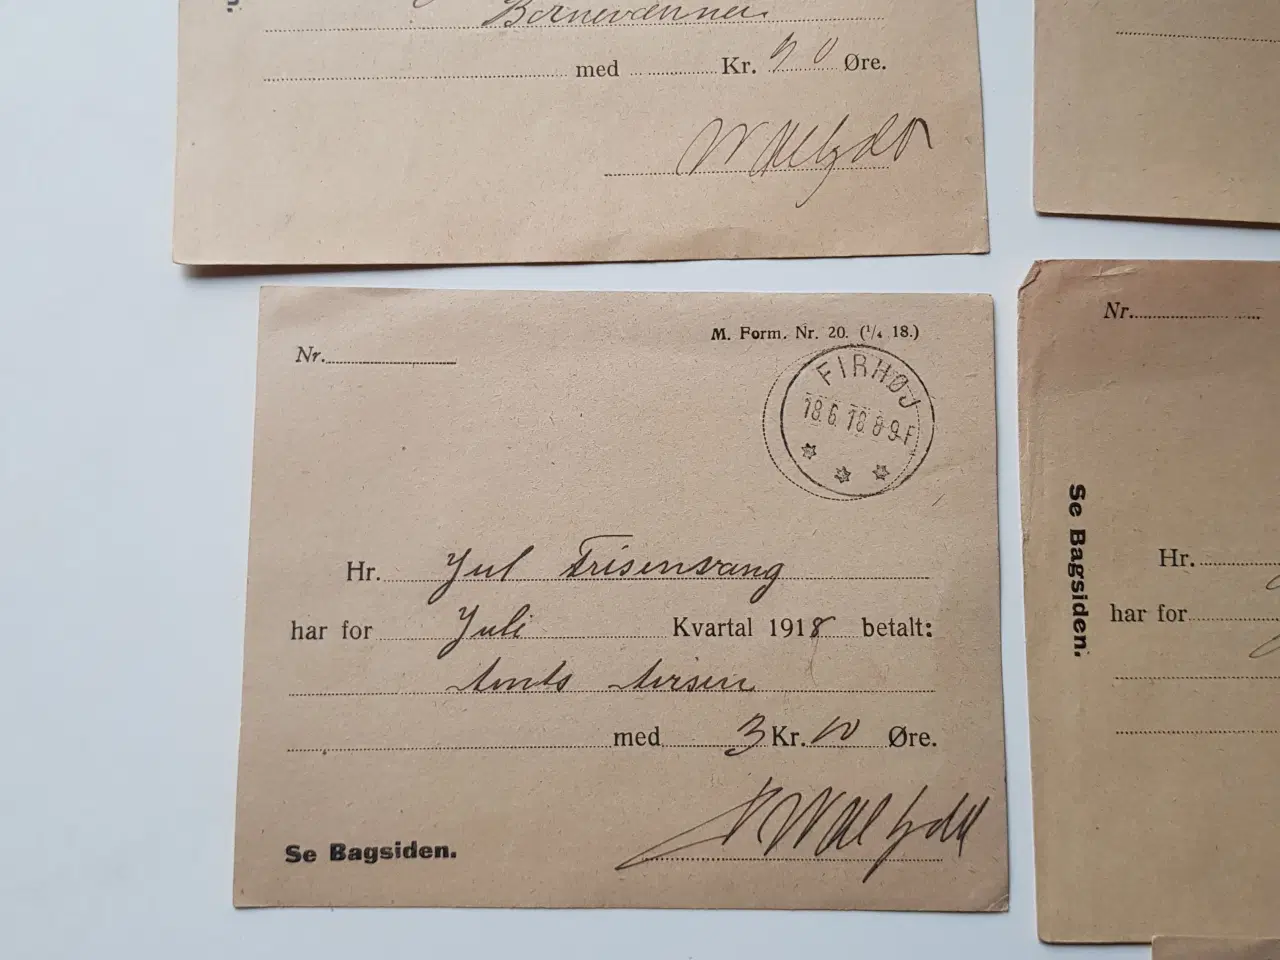 Børnevennen
med Kr. 90 Øre.
M. Form. Nr. 20. (1/4 18.)
Nr.
FIRHØJ
18.6.18 8-9 F
Hr. Jul Friisenvang
har for Juli Kvartal 1918 betalt:
Amts Avisen
med 3 Kr. 10 Øre.
Se Bagsiden.
Nr.
Se Bagsiden.
Hr.
har for